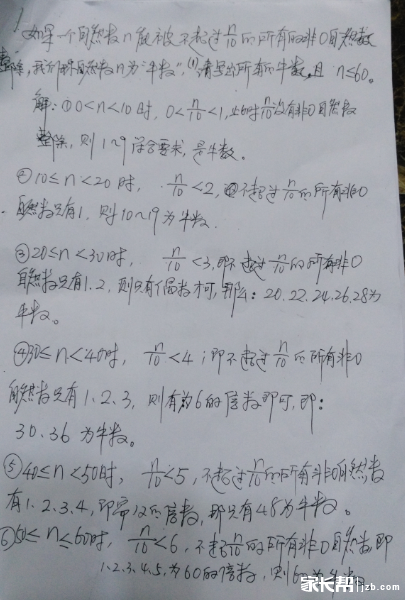 1.
如果一个自然数n能被不超过n/10的所有的非0自然数
整除,我们称自然数n为“牛数”,(1)请写出所有的牛数,且 n≤60。
解:①0<n<10时, 0<n/10<1,此时n/10没有非0自然数
整除,则1~9符合要求,是牛数。
②10≤n<20时, n/10<2, 不超过n/10的所有非0
自然数只有1, 则10~19为牛数.
③20≤n<30时, n/10<3,即不超过n/10的所有非0
自然数只有1.2, 则只有偶数才可,即: 20.22.24.26.28为
牛数。
④30≤n<40时, n/10<4;即不超过n/10的所有非0
自然数只有1.2.3, 则有为6的倍数即可,即:
30.36 为牛数。
⑤40≤n<50时, n/10<5, 不超过n/10的所有非0自然数
有1.2.3.4,即需12的倍数,即只有48为牛数。
⑥50≤n≤60时, n/10<6, 不超n/10的所有非0自然数即
1.2.3.4.5,为60的倍数,则60为牛数
家长帮 jzb.com